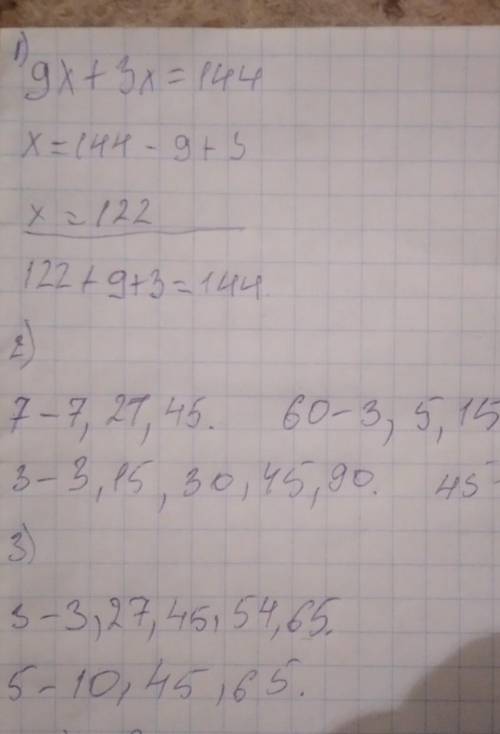 1)
9x+3x=144
x=144-9+3
x=122
122+9+3=144
2)
7-7, 21, 45. 60-3, 5, 15
3-3, 15, 30, 45, 90. 45-
3)
3-3, 27, 45, 54, 65.
5-10, 45, 65.